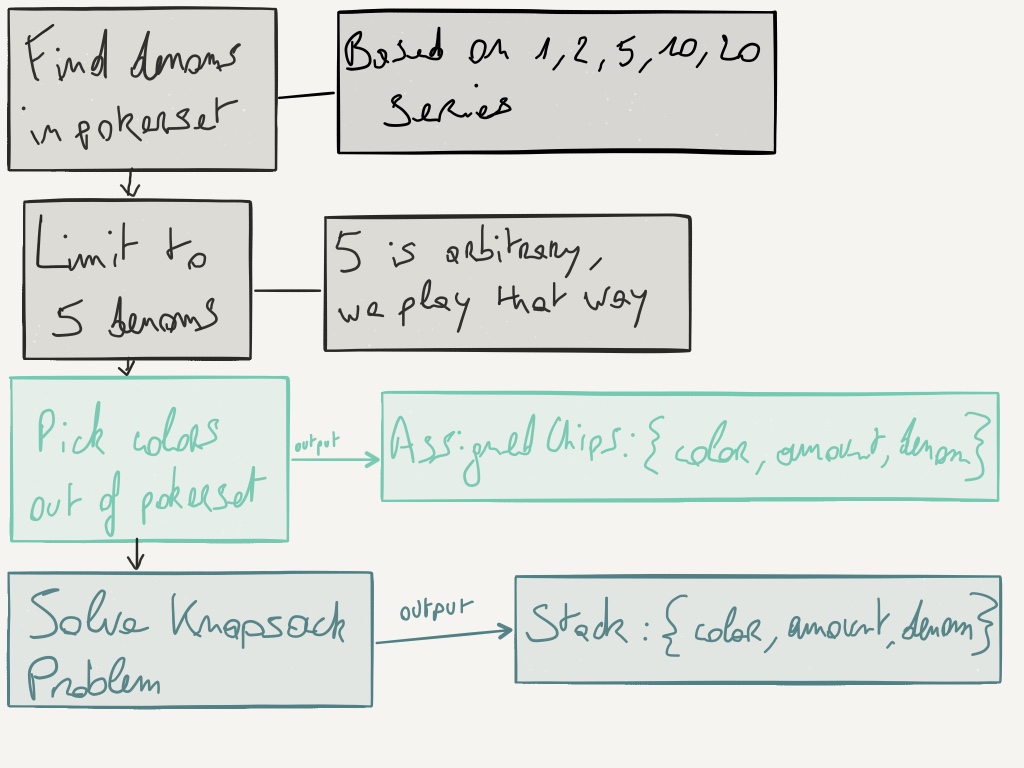 Find denoms
in pokerset
Based on 1, 2, 5, 10, 20
series
Limit to
5 denoms
5 is arbitrary,
we play that way
Pick colors
out of pokerset
output
Assigned Chips: { color, amount, denom }
Solve Knapsack
Problem
output
Stack : { color, amount, denom }